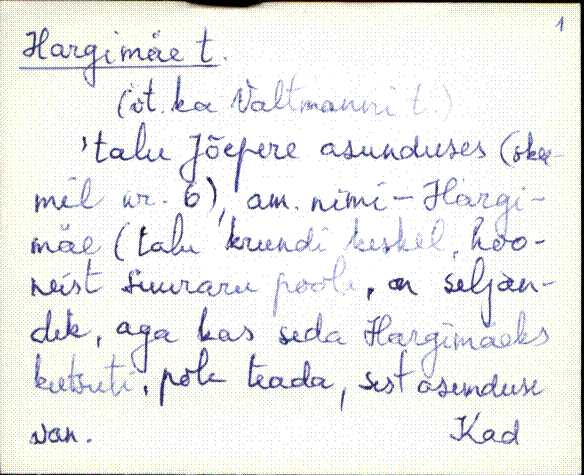 1
Hargimäe t.
(vt. ka Valtmanni t.)
'talu Jõepere asunduses (skee-
mil nr. 6), am. nimi – Hargi-
mäe (talu krundi keskel, hoo-
neist Suuraru poole, on seljan-
dik, aga kas seda Hargimäeks
kutsuti, pole teada, sest asunduse
van.
Kad